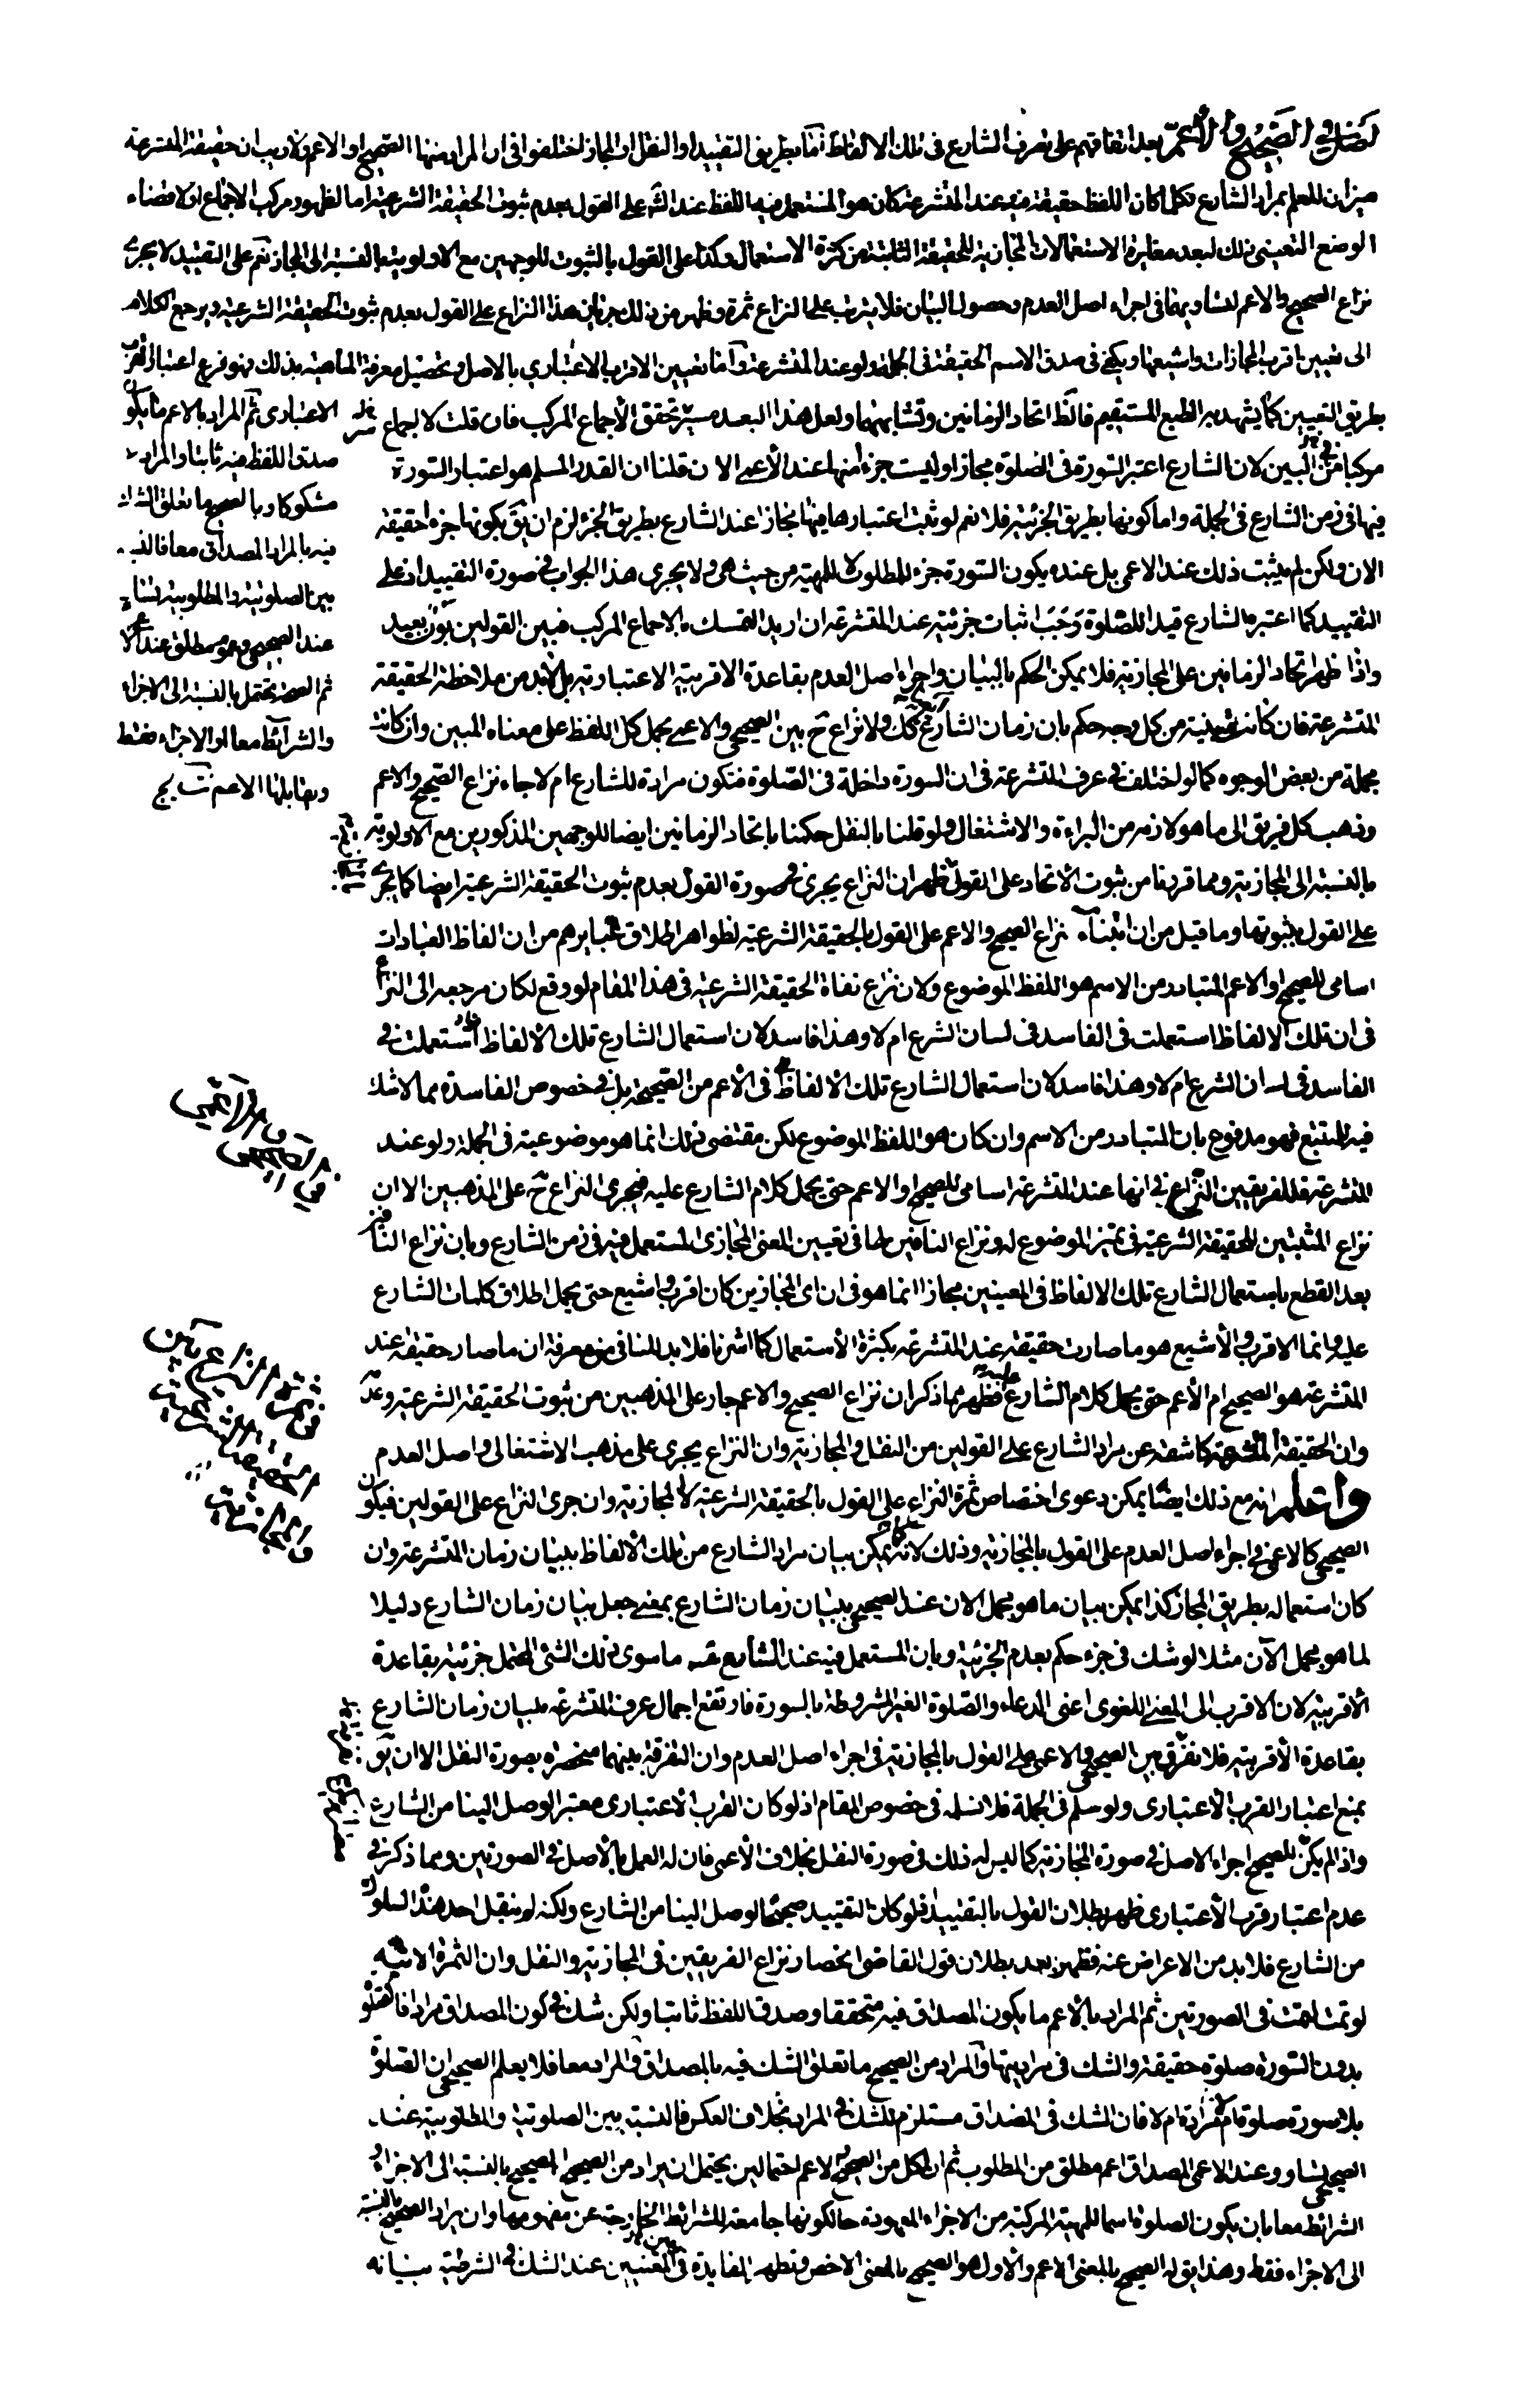 فصل في الصحيح والأعم بعد اتفاقهم على تصرف الشارع في تلك الالفاظ اما بطريق التقييد او النقل او المجاز اختلفوا في ان المراد منها الصحيح او الاعم ولا ريب ان حقيقة المتشرعة
ميزان للعلم بمراد الشارع فكلما كان اللفظ حقيقة فيه عند المتشرعة كان هو المستعمل فيه اللفظ عند الشارع على القول بعدم ثبوت الحقيقة الشرعية اما لظهور مركب الاجماع او لاقتضاء
الوضع التعيني ذلك لبعد مغايرة الاستعمالات المجازية للحقيقة الثابتة من كثرة الاستعمال وكذا على القول بالثبوت للوجهين مع الاولوية بالنسبة الى المجاز نعم على التقييد لا يجري
نزاع الصحيح والاعم لتساويهما في اجراء اصل العدم وحصول البيان فلا يترتب على النزاع ثمرة وظهر من ذلك جريان هذا النزاع على القول بعدم ثبوت الحقيقة الشرعية ويرجع الكلام
الى تعيين اقرب المجازات واشيعها ويكفي في صدق الاسم الحقيقة في الجملة ولو عند المتشرعة واما تعيين الاقرب الاعتباري بالاصل وتحصيل معرفة الماهية بذلك فهو فرع اعتبار القرب
بطريق التعيين كما يشهد به الطبع المستقيم فالظ اتحاد الزمانين وتشابههما ولعل هذا البعد مستر تحقق الأجماع المركب فان قلت لا اجماع
مركبا في البين لان الشارع اعتبر السورة في الصلوة مجازا وليست جزء منها عند الأعمى الان قلنا ان القدر المسلم هو اعتبار السورة
فيها في زمن الشارع في الجملة واما كونها بطريق الجزئية فلا نعم لو ثبت اعتبارها فيها مجازا عند الشارع بطريق الجزء لزم ان يق بكونها جزء حقيقة
الان ولكن لم يثبت ذلك عند الاعمى بل عنده يكون السورة جزء للمطلوب لا للمهية من حيث هي ولا يجري هذا الجواب في صورة التقييد اذ على
التقييد كما اعتبره الشارع قيدا للصلوة وجب اثبات جزئيته عند المتشرعة ان اريد التمسك بالاجماع المركب فبين القولين بون بعيد
واذا ظهر اتحاد الزمانين على المجازية فلا يمكن الحكم بالبيان واجراء اصل العدم بقاعدة الاقربية الاعتبارية بل لابد من ملاحظة الحقيقة
المتشرعة فان كانت مبنية من كل وجه حكم بان زمان الشارع كك ولا نزاع ح بين الصحيحي والاعمي بحمل كل اللفظ على معناه المبين وان كانت
مجملة من بعض الوجوه كما لو اختلف في عرف المتشرعة في ان السورة داخلة في الصلوة فتكون مرادة للشارع ام لا جاء نزاع الصحيح والاعم
وذهب كل فريق الى ما هو لازمه من البراءة والاشتغال ولو قلنا بالنقل حكمنا باتحاد الزمانين ايضا للوجهين المذكورين مع الاولوية
بالنسبة الى المجازية ومما قررنا من ثبوت الأتحاد على القول ظهر ان النزاع يجري في صورة القول بعدم ثبوت الحقيقة الشرعية ايضا كما يجري
على القول بثبوتها وما قيل من ان ابتناء نزاع الصحيح والاعم على القول بالحقيقة الشرعية لظواهر اطلاق تعابيرهم من ان الفاظ العبادات
اسامي للصحيح او الاعم المتبادر من الاسم هو اللفظ الموضوع ولان نزاع نفاة الحقيقة الشرعية في هذا المقام لو وقع لكان مرجعه الى النزاع
في ان تلك الالفاظ استعملت في الفاسد في لسان الشرع ام لا وهذا فاسد لان استعمال الشارع تلك الألفاظ استعملت في
الفاسد في لسان الشرع ام لا وهذا فاسد لان استعمال الشارع تلك الألفاظ في الأعم من الصحيحة بل في خصوص الفاسدة مما لا شك
فيه للمتتبع فهو مدفوع بان المتبادر من الاسم وان كان هو اللفظ الموضوع لكن مقتضى ذلك انما هو موضوعية في الجملة ولو عند
المتشرعة فللفريقين النزاع في انها عند المتشرعة اسامي للصحيح او الاعم حتى يحمل كلام الشارع عليه فيجري النزاع ح على المذهبين الا ان
نزاع المثبتين للحقيقة الشرعية في تميز الموضوع له ونزاع النافين لها في تعيين المعنى المجازي المستعمل فيه في زمن الشارع وبان نزاع النافين
بعد القطع باستعمال الشارع تلك الالفاظ في المعنيين مجازا انما هو في ان اي المجازين كان اقرب واشيع حتى يحمل اطلاق كلمات الشارع
عليه وانما الاقرب والأشيع هو ما صارت حقيقة عند المتشرعة بكثرة الأستعمال كما اشرنا فلا بد للنافي من معرفة ان ما صار حقيقة عند
المتشرعة هو الصحيح ام الأعم حتى يحمل كلام الشارع عليه فظهر مما ذكر ان نزاع الصحيح والاعم جار على المذهبين من ثبوت الحقيقة الشرعية وعدمه
وان الحقيقة المتشرعة كاشفة عن مراد الشارع على القولين من النقل والمجازية وان النزاع يجري على مذهب الاشتغالي واصل العدم
واعلم انه مع ذلك ايضا يمكن دعوى اختصاص ثمرة النزاع على القول بالحقيقة الشرعية لا المجازية وان جرى النزاع على القولين فيكون
الصحيحي كالاعمي في اجراء اصل العدم على القول بالمجازية وذلك لانه كما يمكن بيان مراد الشارع من تلك الألفاظ ببيان زمان المتشرعة وان
كان استعماله بطريق المجاز كذا يمكن بيان ما هو مجمل الان عند الصحيحي ببيان زمان الشارع بمعنى جعل بيان زمان الشارع دليلا
لما هو مجمل الآن مثلا لو شك في جزء حكم بعدم الجزئية وبان المستعمل فيه عند الشارع ما سوى ذلك الشئ المحتمل جزئيته بقاعدة
الأقربية لان الاقرب الى المعنى اللغوي اعني الدعاء والصلوة الغير المشروطة بالسورة فارتفع اجمال عرف المتشرعة ببيان زمان الشارع
بقاعدة الأقربية فلا يفرق بين الصحيحي والاعمي على القول بالمجازية في اجراء اصل العدم وان التفرقة بينهما منحصرة بصورة النقل الا ان يق
بمنع اعتبار القرب الأعتباري ولو سلم في الجملة فلا نسلمه في خصوص المقام اذ لو كان القرب الأعتباري معتبرا لوصل الينا من الشارع
واذا لم يكن للصحيحي اجراء الاصل في صورة المجازية كما ليس له ذلك في صورة النقل بخلاف الأعمى فان له العمل بالأصل في الصورتين ومما ذكر في
عدم اعتبار قرب الأعتباري ظهر بطلان القول بالتقييد فلو كان التقييد صحيحا لوصل الينا من الشارع ولكنه لم ينقل احد هذا السلوك
من الشارع فلا بد من الاعراض عنه فظهر بعد بطلان قول القاضي انحصار نزاع الفريقين في المجازية والنقل وان الثمرة الاتية
لو تمت لتمت في الصورتين ثم المراد بالأعم ما يكون المصداق فيه متحققا وصدق اللفظ ثابتا ولكن شك في كون المصداق مرادا فالصلوة
بدون السورة صلوة حقيقة والشك في مراديتها والمراد من الصحيح ما تعلق الشك فيه بالمصداق والمراد معا فلا يعلم الصحيحي ان الصلوة
بلا سورة صلوة ام لا مرادة ام لا فان الشك في المصداق مستلزم للشك في المراد بخلاف العكس فالنسبة بين الصلوتية والمطلوبية عند
الصحيحي تساو وعند الاعمي المصداق اعم مطلق من المطلوب ثم ان لكل من الصحيح والاعم احتمالين يحتمل ان يراد من الصحيح الصحيح بالنسبة الى الاجزاء و
الشرائط معا بان يكون الصلوة اسما للمهية المركبة من الاجزاء المعهودة حالكونها جامعة للشرائط الخارجة عن مفهومها وان يراد الصحيح بالنسبة
الى الاجزاء فقط وهذا يق له الصحيح بالمعنى الاعم والأول هو الصحيح بالمعنى الاخص وتظهر الفايدة في المعنيين عند الشك في الشرطية ببيانه
الاعتباري ثم المراد بالاعم ما يكون
صدق اللفظ فيه ثابتا والمراد
مشكوكا وبالصحيح ما تعلق الشك
فيه بالمراد والمصداق معا فالنسبة
بين الصلوتية والمطلوبية تساو
عند الصحيحي وعموم مطلق عند الاعمي
ثم الصحة تحتمل بالنسبة الى الاجزاء
والشرائط معا او الاجزاء فقط
ويقابلها الاعم